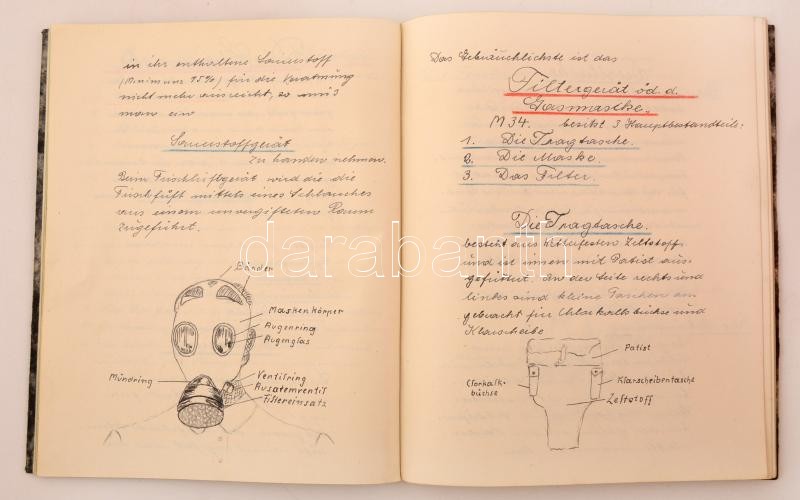 in ihr enthaltene Sauerstoff
(Minimum 15%) für die Veratmung
nicht mehr ausreicht, so muß
man ein
Sauerstoffgerät
zu handen nehmen.
Beim Frischluftgerät wird die die
Frischluft mittels eines Schlauches
aus einem unvergifteten Raum
zugeführt.
Bänder
Maskenkörper
Augenring
Augenglas
Mundring
Ventilring
Ausatemventil
Filtereinsatz
Das Gebräuchlichste ist das
Filtergerät od. d.
Gasmaske.
M 34. besitzt 3 Hauptbestandteile:
1. Die Tragtasche.
2. Die Maske.
3. Das Filter.
Die Tragtasche.
besteht aus Zeltstoff
und ist innen mit Patist aus-
gefüttert. An der Seite rechts und
links sind kleine Taschen an-
gebracht für Chlorkalkbüchse und
Klarscheibe
Patist
Clorkalk-
büchse
Klarscheibentasche
Zeltstoff
darabanth